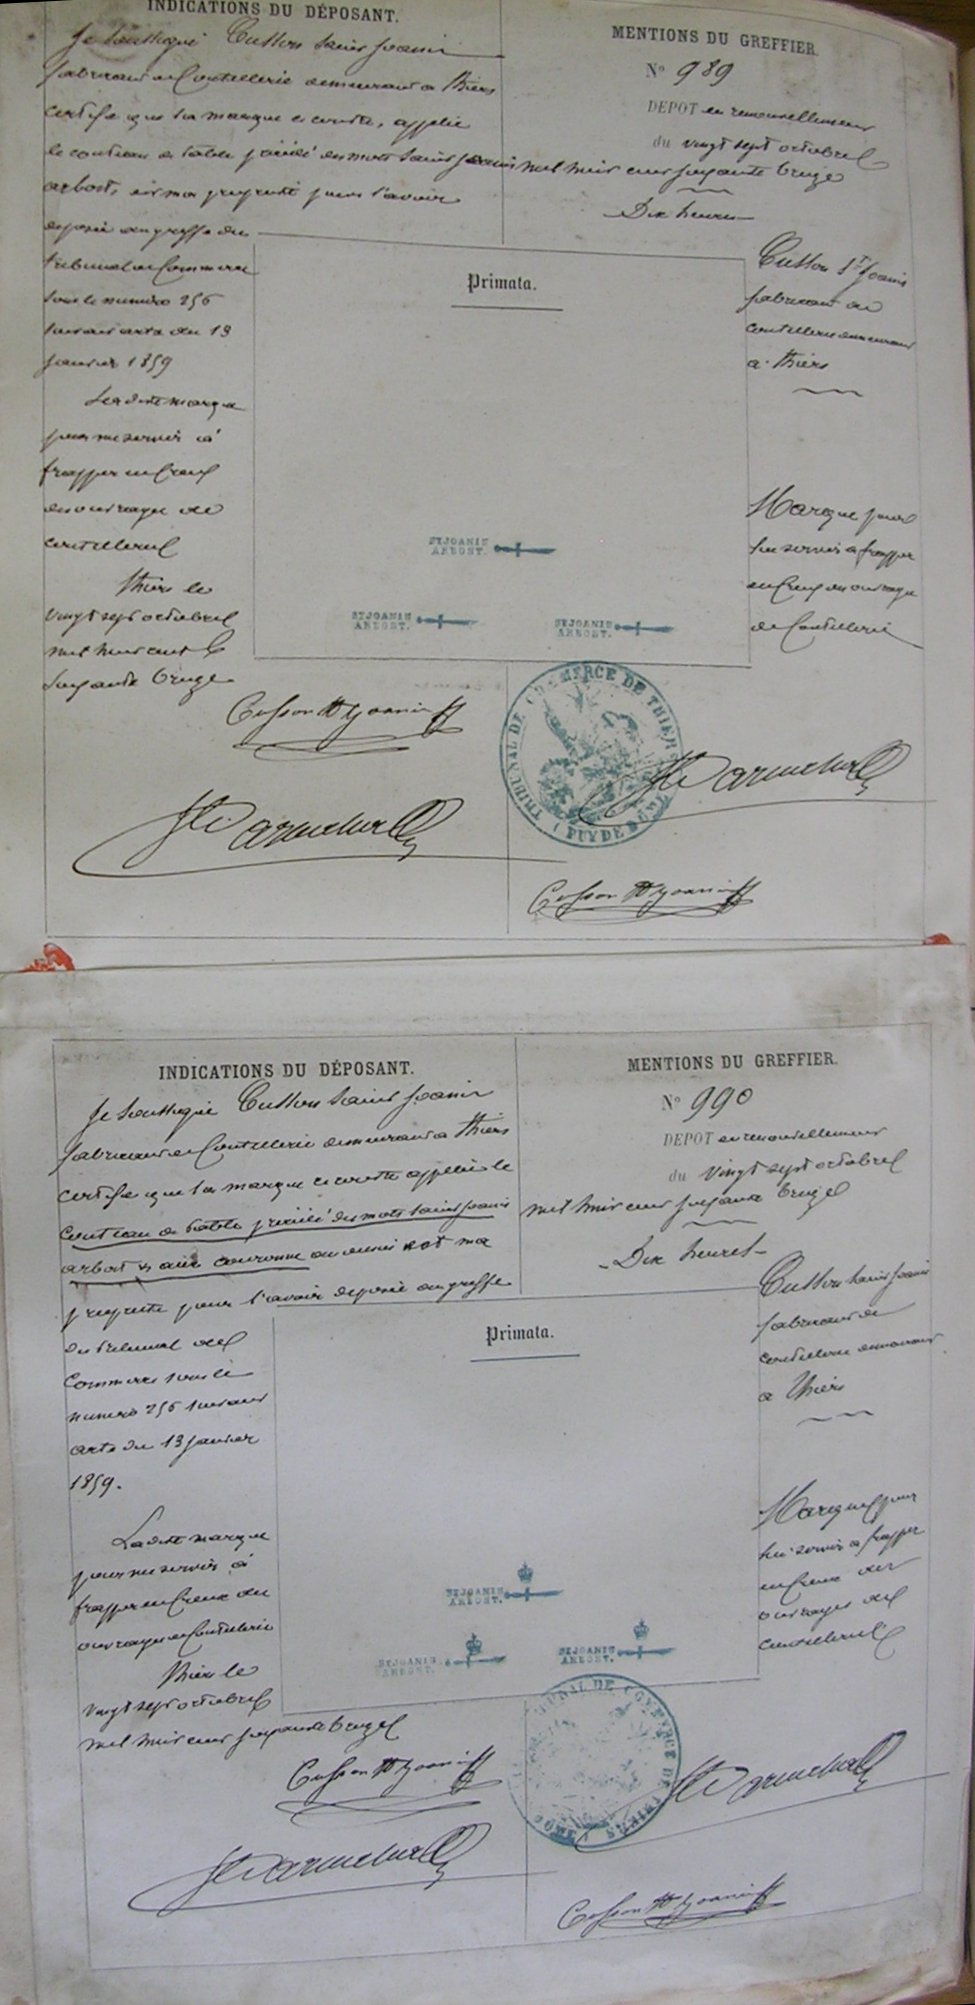 INDICATIONS DU DÉPOSANT.
Je soussigné Cusson Saint Joanis
fabricant de Coutellerie demeurant à Thiers
certifie que la marque ci contre, appelée
le couteau de table précédé des mots Saint Joanis
arbost, est ma propriété pour l'avoir
déposée au greffe du
tribunal de Commerce
sous le numéro 256
suivant acte du 13
Janvier 1859
La dite marque
pour me servir à
frapper en Creux
des ouvrages de
coutellerie
Thiers le
vingt sept octobre
mil huit cent
soixante treize
Cusson St Joanis
MENTIONS DU GREFFIER.
No 989
DEPOT en renouvellement
du vingt sept octobre
mil huit cent soixante treize
Dix heures
Primata.
Cusson St Joanis
fabricant de
coutellerie demeurant
à Thiers
Marque pour
lui servir à frapper
en Creux des ouvrages
de Coutellerie
ST JOANIS
ARBOST.
ST JOANIS
ARBOST.
ST JOANIS
ARBOST.
TRIBUNAL DE COMMERCE DE THIERS
(PUY DE DÔME)
Cusson St Joanis
INDICATIONS DU DÉPOSANT.
Je soussigné Cusson Saint Joanis
fabricant de Coutellerie demeurant à Thiers
certifie que la marque ci contre appelée le
Couteau de table précédé des mots Saint Joanis
arbost & une couronne au dessus est ma
propriété pour l'avoir déposée au greffe
du tribunal de
Commerce sous le
numéro 256 suivant
acte du 13 janvier
1859.
La dite marque
pour me servir à
frapper en Creux des
ouvrages de Coutellerie
Thiers le
vingt sept octobre
mil huit cent soixante treize
Cusson St Joanis
MENTIONS DU GREFFIER.
No 990
DEPOT en renouvellement
du vingt sept octobre
mil huit cent soixante treize
Dix heures
Primata.
Cusson Saint Joanis
fabricant de
coutellerie demeurant
à Thiers
Marque pour
lui servir à frapper
en Creux des
ouvrages de
coutellerie
ST JOANIS
ARBOST.
ST JOANIS
ARBOST.
ST JOANIS
ARBOST.
TRIBUNAL DE COMMERCE DE THIERS
Cusson St Joanis